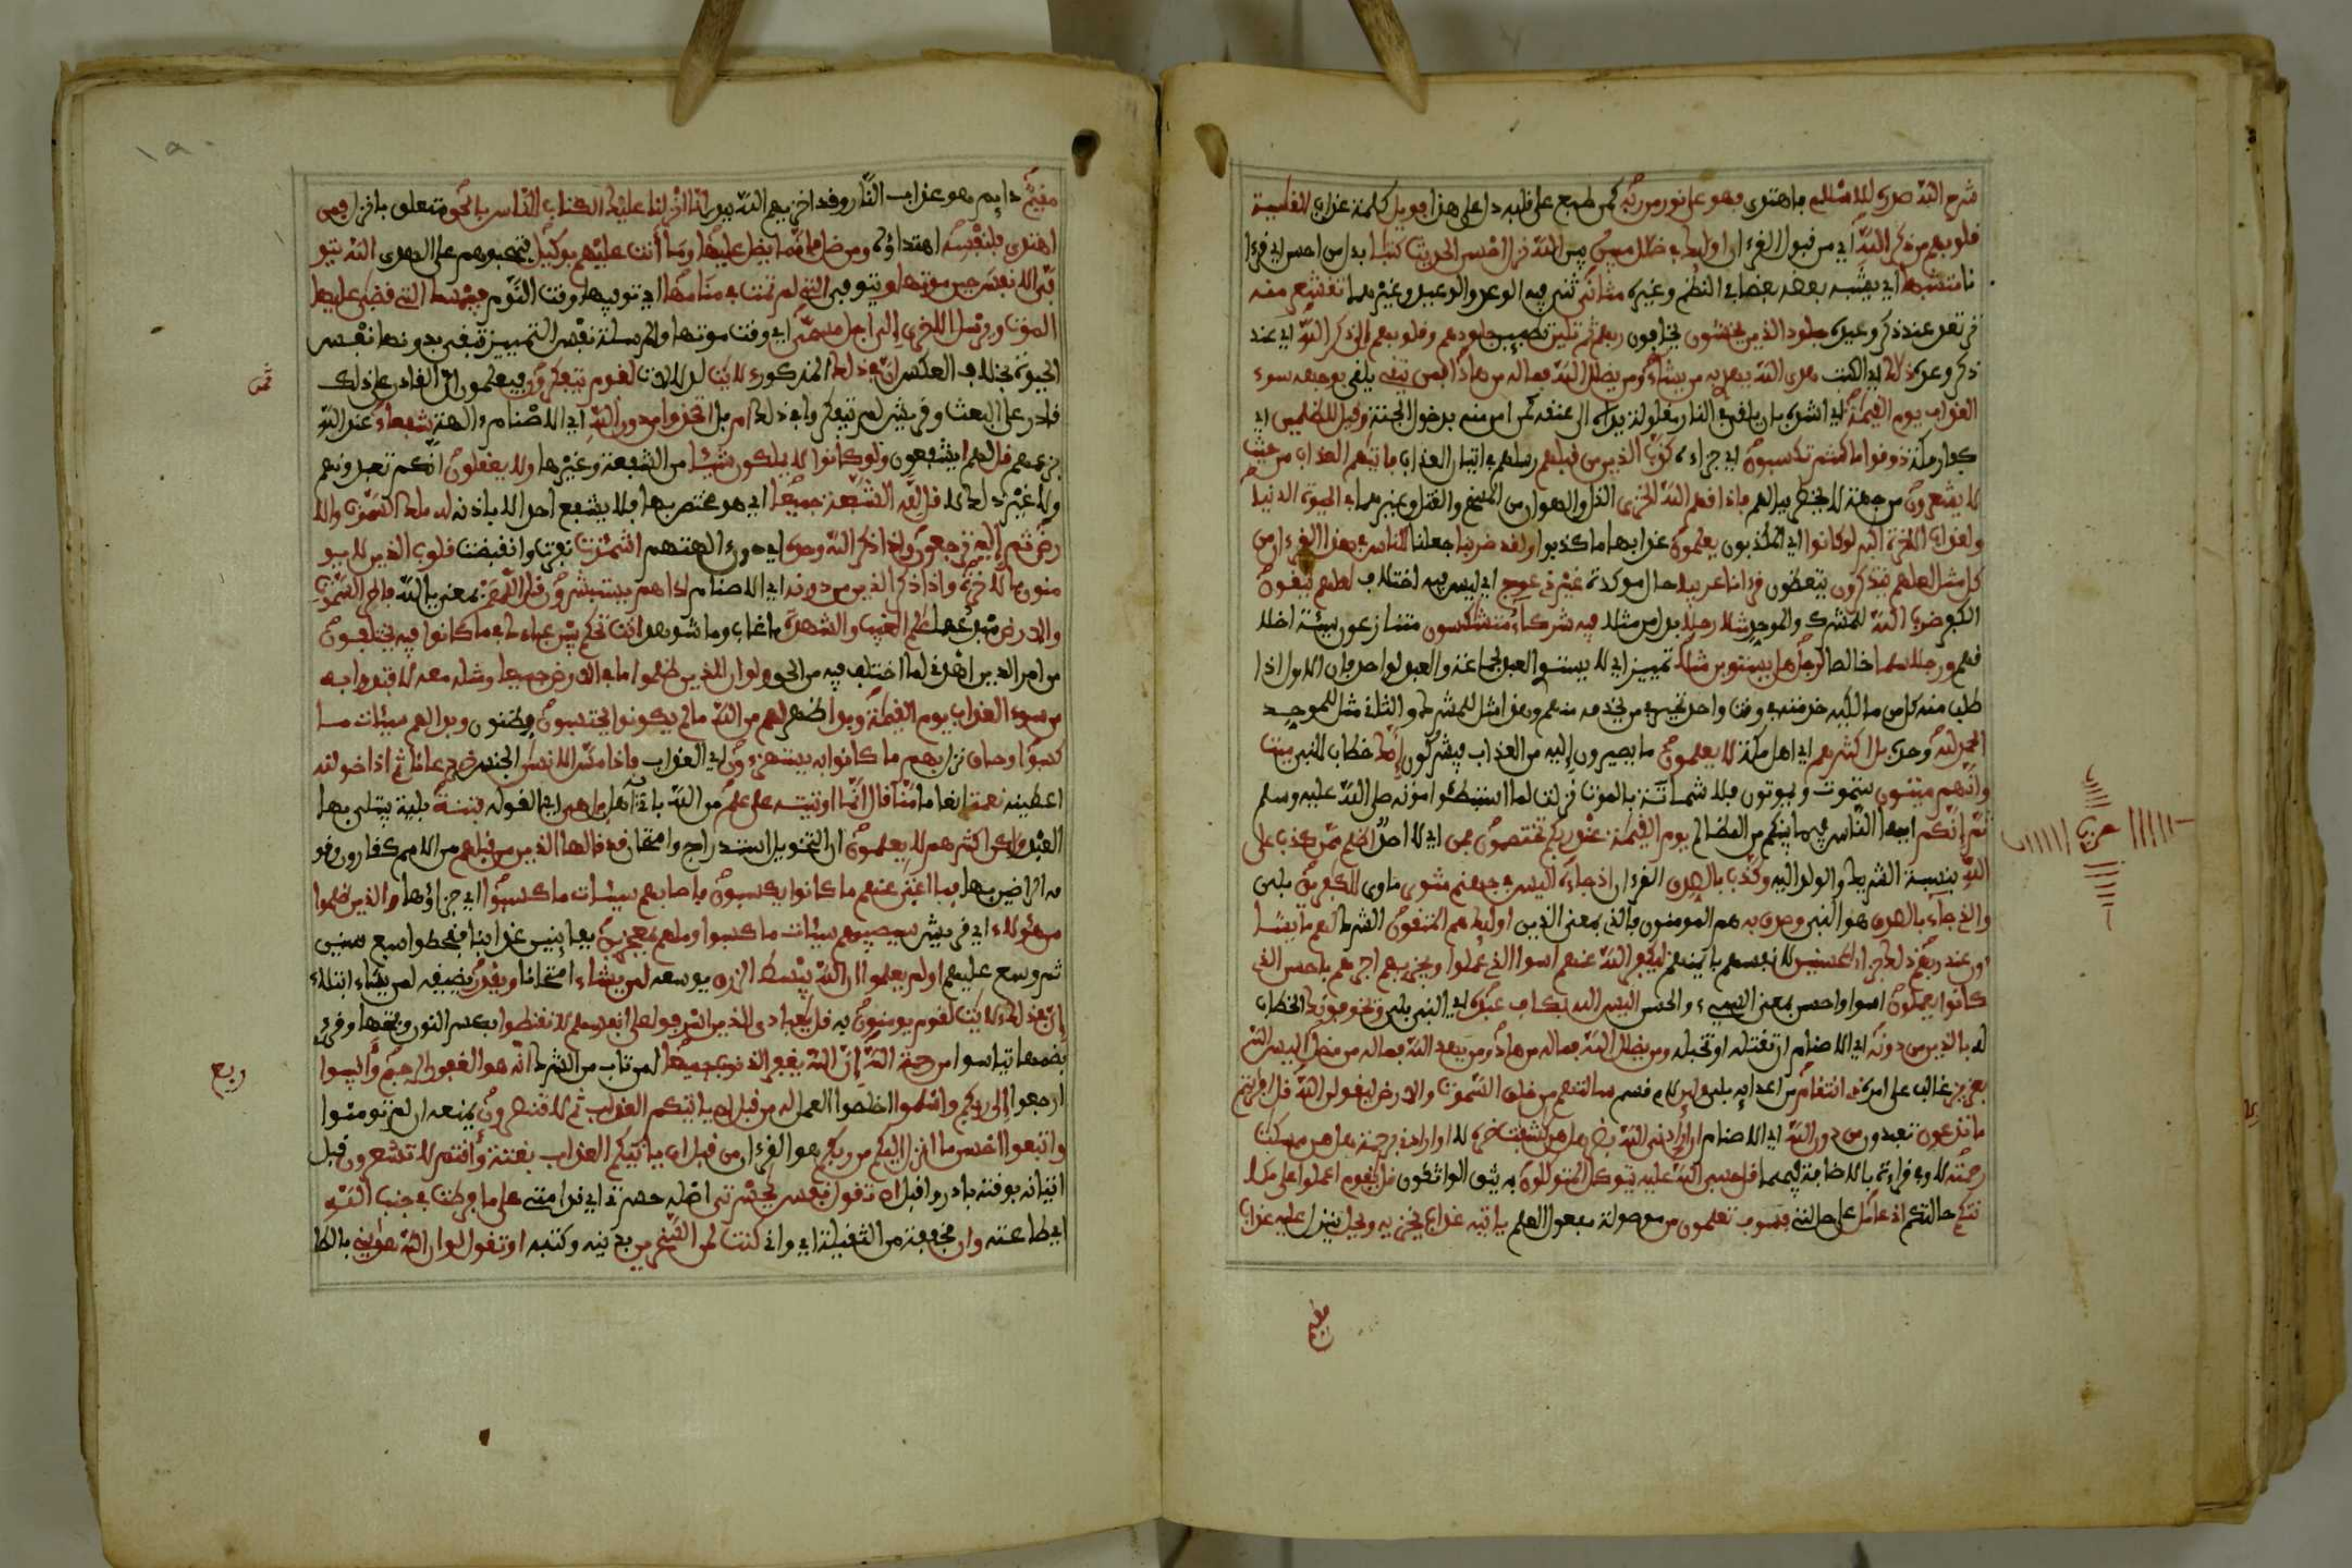 شرح الله صدره للاسلام فاهتدى فهو على نور من ربه كمن طبع على قلبه دل على هذا فويل كلمة عذاب للقاسية
قلوبهم من ذكر الله اي من قبول القرءان اوليك في ضلل مبين بين الله نزل احسن الحديث كتبا بدل من احسن اي قرءا
نا متشبها اي يشبه بعضه بعضا في النظم وغيره مثاني ثني فيه الوعد والوعيد وغيرهما تقشعر منه
ترتعد عند ذكر وعيده جلود الذين يخشون يخافون ربهم ثم تلين تطمين جلودهم وقلوبهم الى ذكر الله اي عند
ذكر وعده ذلك اي الكتب هدى الله يهدي به من يشاء ومن يضلل الله فماله من هاد افمن يتقي يلقى بوجهه سوء
العذاب يوم القيمة اي اشده بان يلقى في النار مغلولة يداه الى عنقه كمن امن منه بدخول الجنة وقيل للظلمين اي
كفار مكة ذوقوا ما كنتم تكسبون اي جزاءه كذب الذين من قبلهم رسلهم في اتيان العذاب فاتيهم العذاب من حيث
لا يشعرون من جهة لا يخطر ببالهم فاذاقهم الله الخزي الذل والهوان من المسخ والقتل وغيرهما في الحيوة الدنيا
ولعذاب الاخرة اكبر لو كانوا اي المكذبون يعلمون عذابها ما كذبوا ولقد ضربنا جعلنا للناس في هذا القرءان من
كل مثل لعلهم يتذكرون يتعظون قرانا عربيا حال موكدة غير ذي عوج اي لبس فيه اختلاف لعلهم يتقون
الكفر ضرب الله للمشرك والموحد مثلا رجلا بدل من مثلا فيه شركاء متشكسون متنازعون سيئة اخلا
قهم ورجلا سلما خالصا لرجل هل يستوين مثلا تمييز اي لا يستوي العبد لجماعة والعبد لواحد فان الاول اذا
طلب منه كل من مالكيه خدمته في وقت واحد تحير في من يخدمه منهم وهذا مثل للمشرك والثاني مثل للموحد
الحمد لله وحده بل اكثرهم اي اهل مكة لا يعلمون ما يصيرون اليه من العذاب فيشركون انك خطاب للنبي ميت
وانهم ميتون ستموت ويموتون فلا شماتة بالموت نزلت لما استبطئوا موته صلى الله عليه وسلم
ثم انكم ايها الناس فيما بينكم من المظالم يوم القيمة عند ربكم تختصمون فمن اي لا احد اظلم ممن كذب على
الله بنسبة الشريك والولد اليه وكذب بالصدق القرءان اذ جاءه اليس في جهنم مثوى ماوى للكفرين بلى
والذي جاء بالصدق هو النبي وصدق به هم المومنون فالذي بمعنى الذين اوليك هم المتقون الشرك لهم ما يشا
ءون عند ربهم ذلك جزاء المحسنين لانفسهم بايمنهم ليكفر الله عنهم اسوا الذي عملوا ويجزيهم اجرهم باحسن الذي
كانوا يعملون اسوا واحسن بمعنى السيىء والحسن اليس الله بكاف عبده اي النبي بلى ويخوفونك الخطاب
له بالذين من دونه اي الاصنام ان تقتله او تخبله ومن يضلل الله فماله من هاد ومن يهد الله فماله من مضل اليس الله
بعزيز غالب على امره ذي انتقام من اعدايه بلى ولين لام قسم سالتهم من خلق السموت والارض ليقولن الله قل افرءيتم
ما تدعون تعبدون من دون الله اي الاصنام ان ارادني الله بضر هل هن كشفت ضره لا او ارادني برحمة هل هن ممسكت
رحمته لا وفي قراءة بالاضافة فيهما قل حسبي الله عليه يتوكل المتوكلون به يثق الواثقون قل يقوم اعملوا على مكا
نتكم حالتكم اني عامل على حالتي فسوف تعلمون من موصولة مفعول العلم ياتيه عذاب يخزيه ويحل ينزل عليه عذاب
مقيم
حزب
مقيم دايم هو عذاب النار وقد اخزيهم الله ببدر انا انزلنا عليك الكتاب للناس بالحق متعلق بانزل فمن
اهتدى فلنفسه اهتداؤه ومن ضل فانما يضل عليها وما أنت عليهم بوكيل فتجبرهم على الهدى الله يتو
فى الانفس حين موتها ويتوفى التي لم تمت في منامها اي يتوفيها وقت النوم فيمسك التي قضى عليها
الموت ويرسل الاخرى الى اجل مسمى اي وقت موتها والمرسلة نفس التمييز تبقى بدونها نفس
الحيوة بخلاف العكس ان في ذلك المذكور لايت دلالات لقوم يتفكرون فيعلمون ان القادر على ذلك
قادر على البعث وقريش لم يتفكروا في ذلك ام بل اتخذوا من دون الله اي الاصنام ءالهة شفعاء عند الله
بزعمهم قل لهم ايشفعون ولو كانوا لا يملكون شيئا من الشفعة وغيرها ولا يعقلون انكم تعبدونهم
ولا غير ذلك لا قل لله الشفعة جميعا اي هو مختص بها فلا يشفع احد الا باذنه له ملك السموت والا
رض ثم إليه ترجعون واذا ذكر الله وحده اي دون ءالهتهم اشمئزت نفرت وانقبضت قلوب الذين لا يو
منون بالاخرة واذا ذكر الذين من دونه اي الاصنام اذا هم يستبشرون قل اللهم بمعنى يا الله فاطر السموت
والارض مبدعهما علم الغيب والشهدة ما غاب وما شوهد انت تحكم بين عبادك في ما كانوا فيه يختلفون
من امر الدين اهدني لما اختلف فيه من الحق ولو ان للذين ظلموا ما في الارض جميعا ومثله معه لافتدوا به
من سوء العذاب يوم القيمة وبدا ظهر لهم من الله ما لم يكونوا يحتسبون يظنون وبدا لهم سيئات ما
كسبوا وحاق نزل بهم ما كانوا به يستهزءون اي العذاب فاذا مس الانسن الجنس ضر دعانا ثم اذا خولنه
اعطينه نعمة انعاما منا قال انما اوتيته على علم من الله باني له اهل بل هي اي القولة فتنة بلية يبتلى بها
العبد ولكن اكثرهم لا يعلمون ان التخويل استدراج وامتحان قد قالها الذين من قبلهم من الامم كقارون وقو
مه الراضين بها فما اغنى عنهم ما كانوا يكسبون فاصابهم سيئات ما كسبوا اي جزاؤها والذين ظلموا
من هؤلاء اي قريش سيصيبهم سيئات ما كسبوا وما هم بمعجزين بفايتين عذابنا فقحطوا سبع سنين
ثم وسع عليهم اولم يعلموا ان الله يبسط الرزق يوسعه لمن يشاء امتحانا ويقدر يضيقه لمن يشاء ابتلاء
إن في ذلك لايت لقوم يومنون به قل يعبادي الذين اسرفوا على انفسهم لا تقنطوا بكسر النون وبفتحها وقرئ
بضمها تياسوا من رحمة الله إن الله يغفر الذنوب جميعا لمن تاب من الشرك انه هو الغفور الرحيم وأنيبوا
ارجعوا إلى ربكم واسلموا اخلصوا العمل له من قبل ان ياتيكم العذاب ثم لا تنصرون بمنعه ان لم تومنوا
واتبعوا احسن ما انزل اليكم من ربكم هو القرءان من قبل ان ياتيكم العذاب بغتة وأنتم لا تشعرون قبل
اتيانه بوقته بادروا قبل ان تقول نفس يحسرتى اصله حسرتي اي ندامتي على ما فرطت في جنب الله
اي طاعته وان مخففة من الثقيلة اي واني كنت لمن السخرين بدينه وكتبه او تقول لو ان الله هديني بالطا
ثمن
ربع